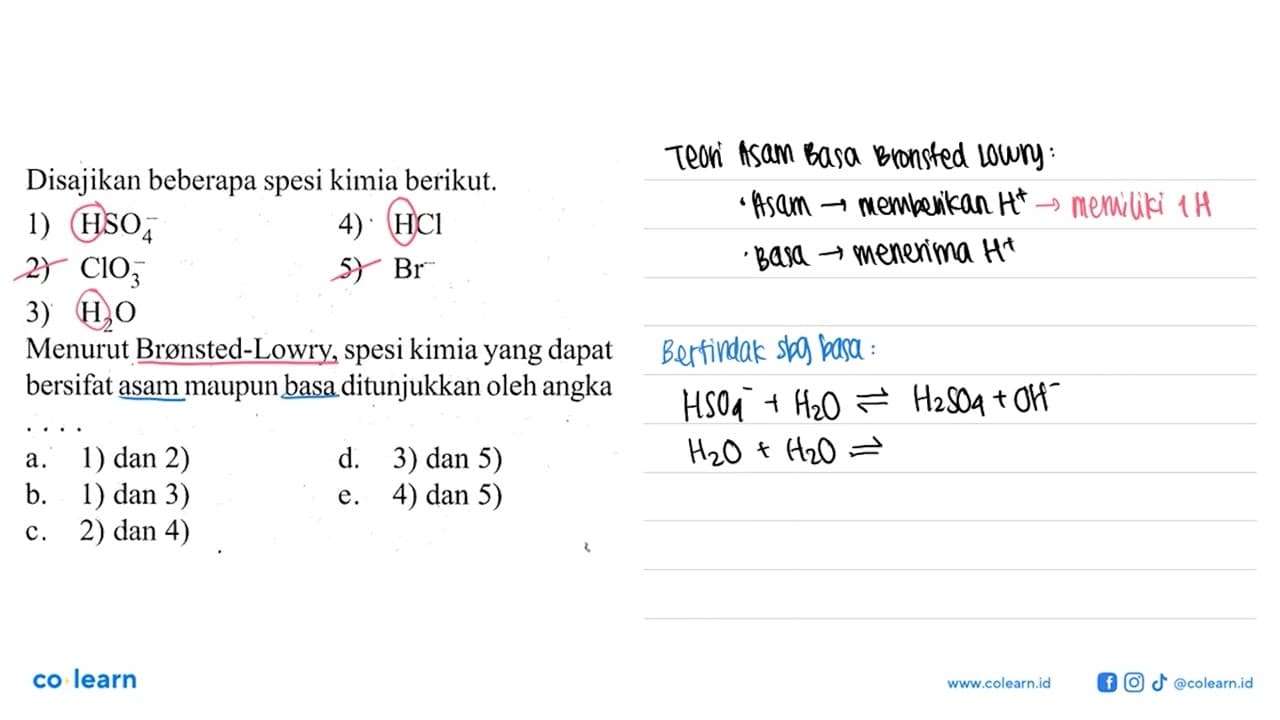 Disajikan beberapa spesi kimia berikut.
1) HSO₄⁻ 4) HCl
2) ClO₃⁻ 5) Br⁻
3) H₂O
Menurut Brønsted-Lowry, spesi kimia yang dapat
bersifat asam maupun basa ditunjukkan oleh angka
. . . .
a. 1) dan 2) d. 3) dan 5)
b. 1) dan 3) e. 4) dan 5)
c. 2) dan 4)
Teori Asam Basa Bronsted Lowry:
• Asam → memberikan H⁺ → memiliki 1 H
• Basa → menerima H⁺
Bertindak sbg basa :
HSO₄⁻ + H₂O ⇌ H₂SO₄ + OH⁻
H₂O + H₂O ⇌
co learn
www.colearn.id @colearn.id